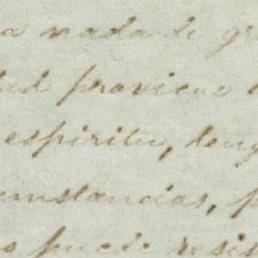 a nada de gr
ud proviene
espiritu, teng
umstancias, p
s puede resis